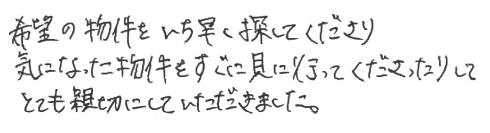 希望の物件をいち早く探してくださり
気になった物件をすぐに見に行ってくださったりして
とても親切にしていただきました。